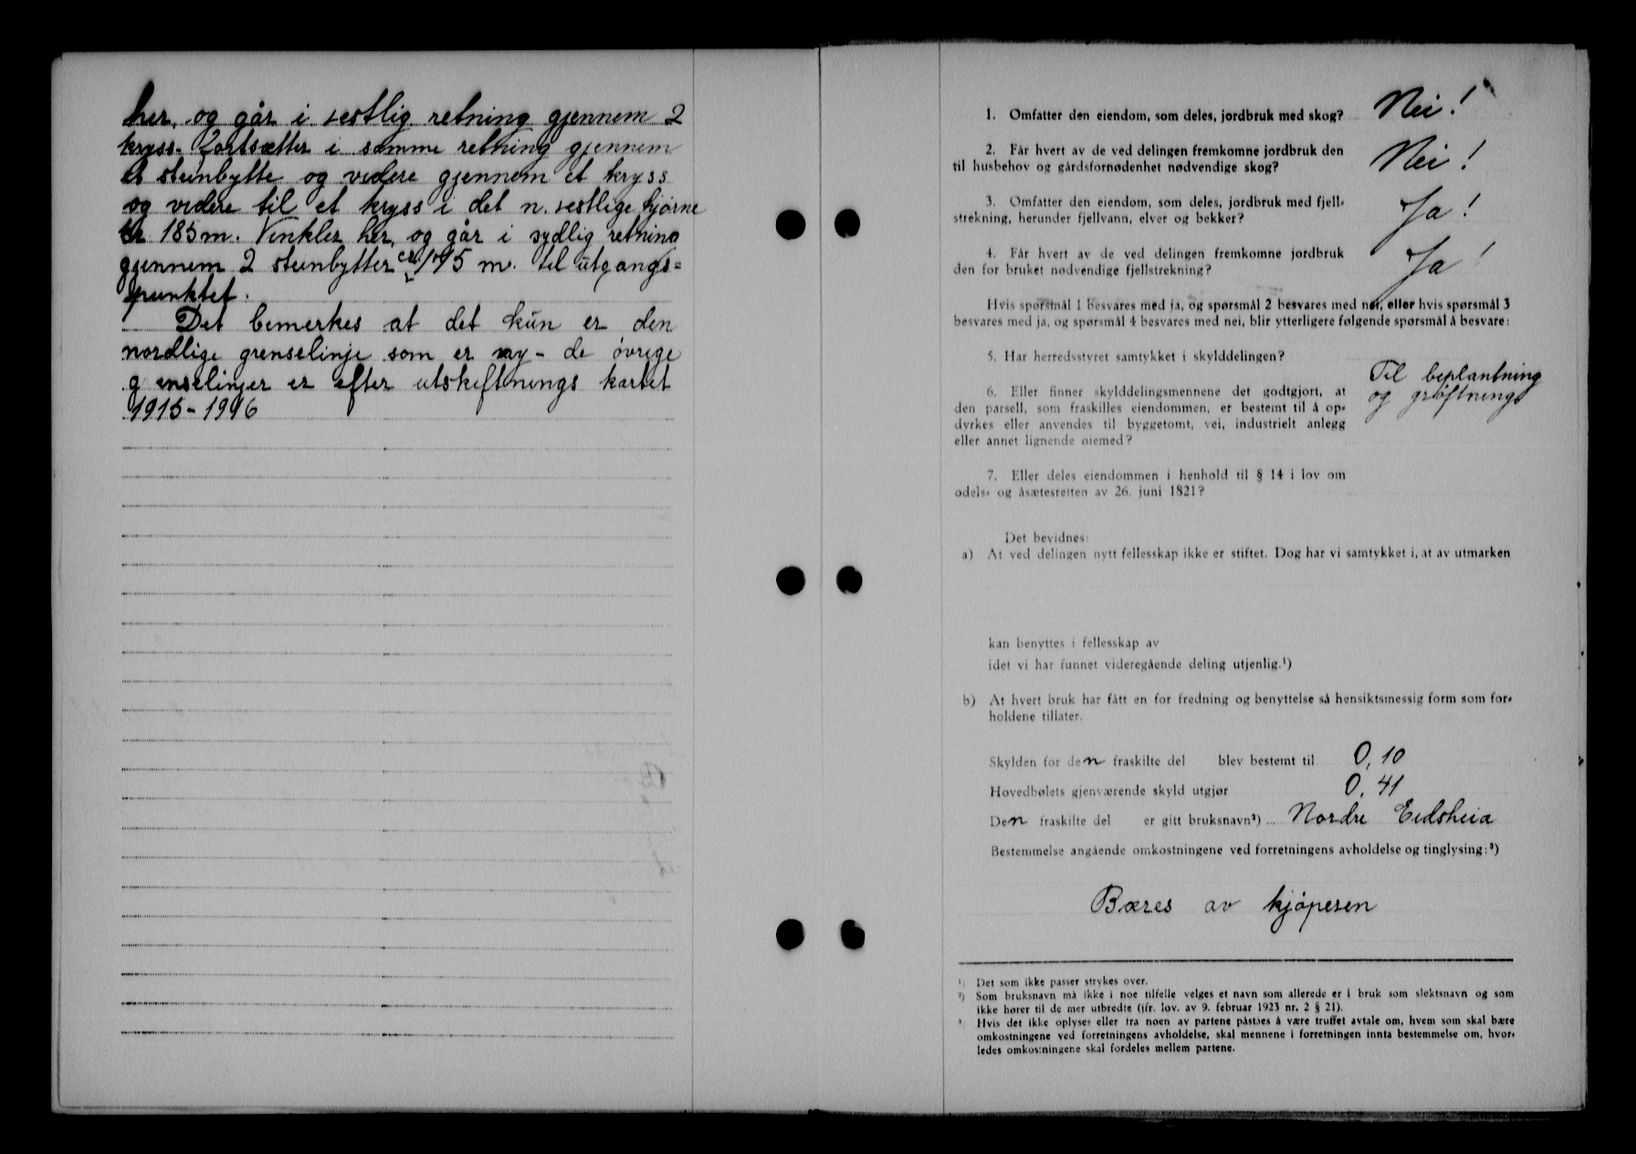 her, og går i vestlig retning gjennem 2
kryss. Fortsætter i samme retning gjennem
et steinbytte og videre gjennem et kryss
og videre til et kryss i det n. vestlige hjørne
er 185 m. Vinkler her, og går i sydlig retning
gjennem 2 steinbytter ca. 145 m. til utgangs=
punktet.
Det bemerkes at det kun er den
nordlige grenselinje som er ny - de øvrige
g enselinjer er efter utskiftnings kartet
1915-1916
1. Omfatter den eiendom, som deles, jordbruk med skog? Nei!
2. Får hvert av de ved delingen fremkomne jordbruk den
til husbehov og gårdsfornødenhet nødvendige skog? Nei!
3. Omfatter den eiendom, som deles, jordbruk med fjell-
strekning, herunder fjellvann, elver og bekker? Ja!
4. Får hvert av de ved delingen fremkomne jordbruk
den for bruket nødvendige fjellstrekning? Ja!
Hvis spørsmål 1 besvares med ja, og spørsmål 2 besvares med nei, eller hvis spørsmål 3
besvares med ja, og spørsmål 4 besvares med nei, blir ytterligere følgende spørsmål å besvare:
5. Har herredsstyret samtykket i skylddelingen?
6. Eller finner skylddelingsmennene det godtgjort, at
den parsell, som fraskilles eiendommen, er bestemt til å op-
dyrkes eller anvendes til byggetomt, vei, industrielt anlegg
eller annet lignende øiemed?
Til beplantning
og grøftning
7. Eller deles eiendommen i henhold til § 14 i lov om
odels- og åsætesretten av 26. juni 1821?
Det bevidnes:
a) At ved delingen nytt fellesskap ikke er stiftet. Dog har vi samtykket i, at av utmarken
kan benyttes i fellesskap av
idet vi har funnet videregående deling utjenlig.¹)
b) At hvert bruk har fått en for fredning og benyttelse så hensiktsmessig form som for-
holdene tillater.
Skylden for den fraskilte del blev bestemt til 0,10
Hovedbølets gjenværende skyld utgjør 0,41
Den fraskilte del er gitt bruksnavn²) Nordre Eidsheia
Bestemmelse angående omkostningene ved forretningens avholdelse og tinglysing:³)
Bæres av kjøperen
¹) Det som ikke passer strykes over.
²) Som bruksnavn må ikke i noe tilfelle velges et navn som allerede er i bruk som slektsnavn og som
ikke hører til de mer utbredte (jfr. lov. av 9. februar 1923 nr. 2 § 21).
³ Hvis det ikke oplyses eller fra noen av partene påståes å være truffet avtale om, hvem som skal bære
omkostningene ved forretningens avholdelse, skal mennene i forretningen innta bestemmelse om, hvor-
ledes omkostningene skal fordeles mellem partene.